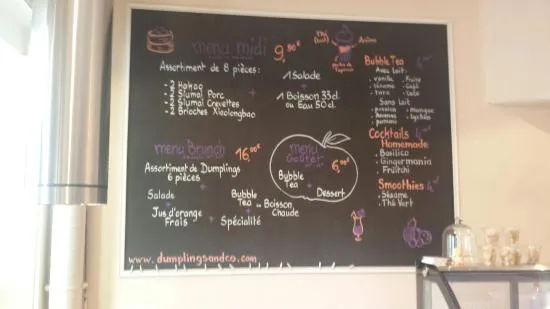 menu midi 9,90€
Assortiment de 8 pièces:
Hakao
2 Siumai Porc
2 Siumai Crevettes
2 Brioches Xiaolongbao
+
1 Salade
+
1 Boisson 33cl
ou Eau 50cl.
Thé
Arôme
Perles de Tapioca
menu Brunch 16,00€
Assortiment de Dumplings
6 pièces
+
Salade
+
Jus d'orange
Frais
+
Bubble
Tea ou Boisson
Chaude
+
Spécialité
menu
Goûter
6,00€
Bubble
Tea
+
Dessert
Bubble Tea
Avec Lait:
vanille
sésame
taro
Café
Coco
Sans Lait
mangue
lychee
Cocktails
Homemade
Basilico
Gingermania
Früitchi
Smoothies
Sésame
Thé Vert
www.dumplingsandco.com